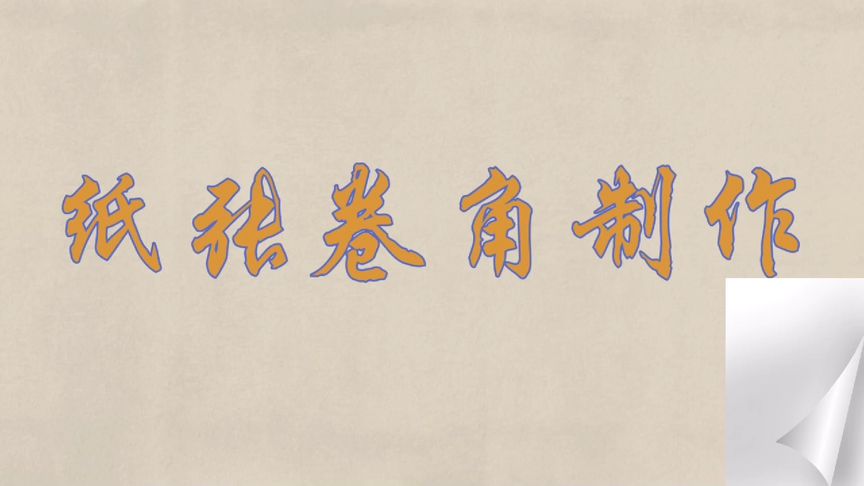 纸张卷角制作